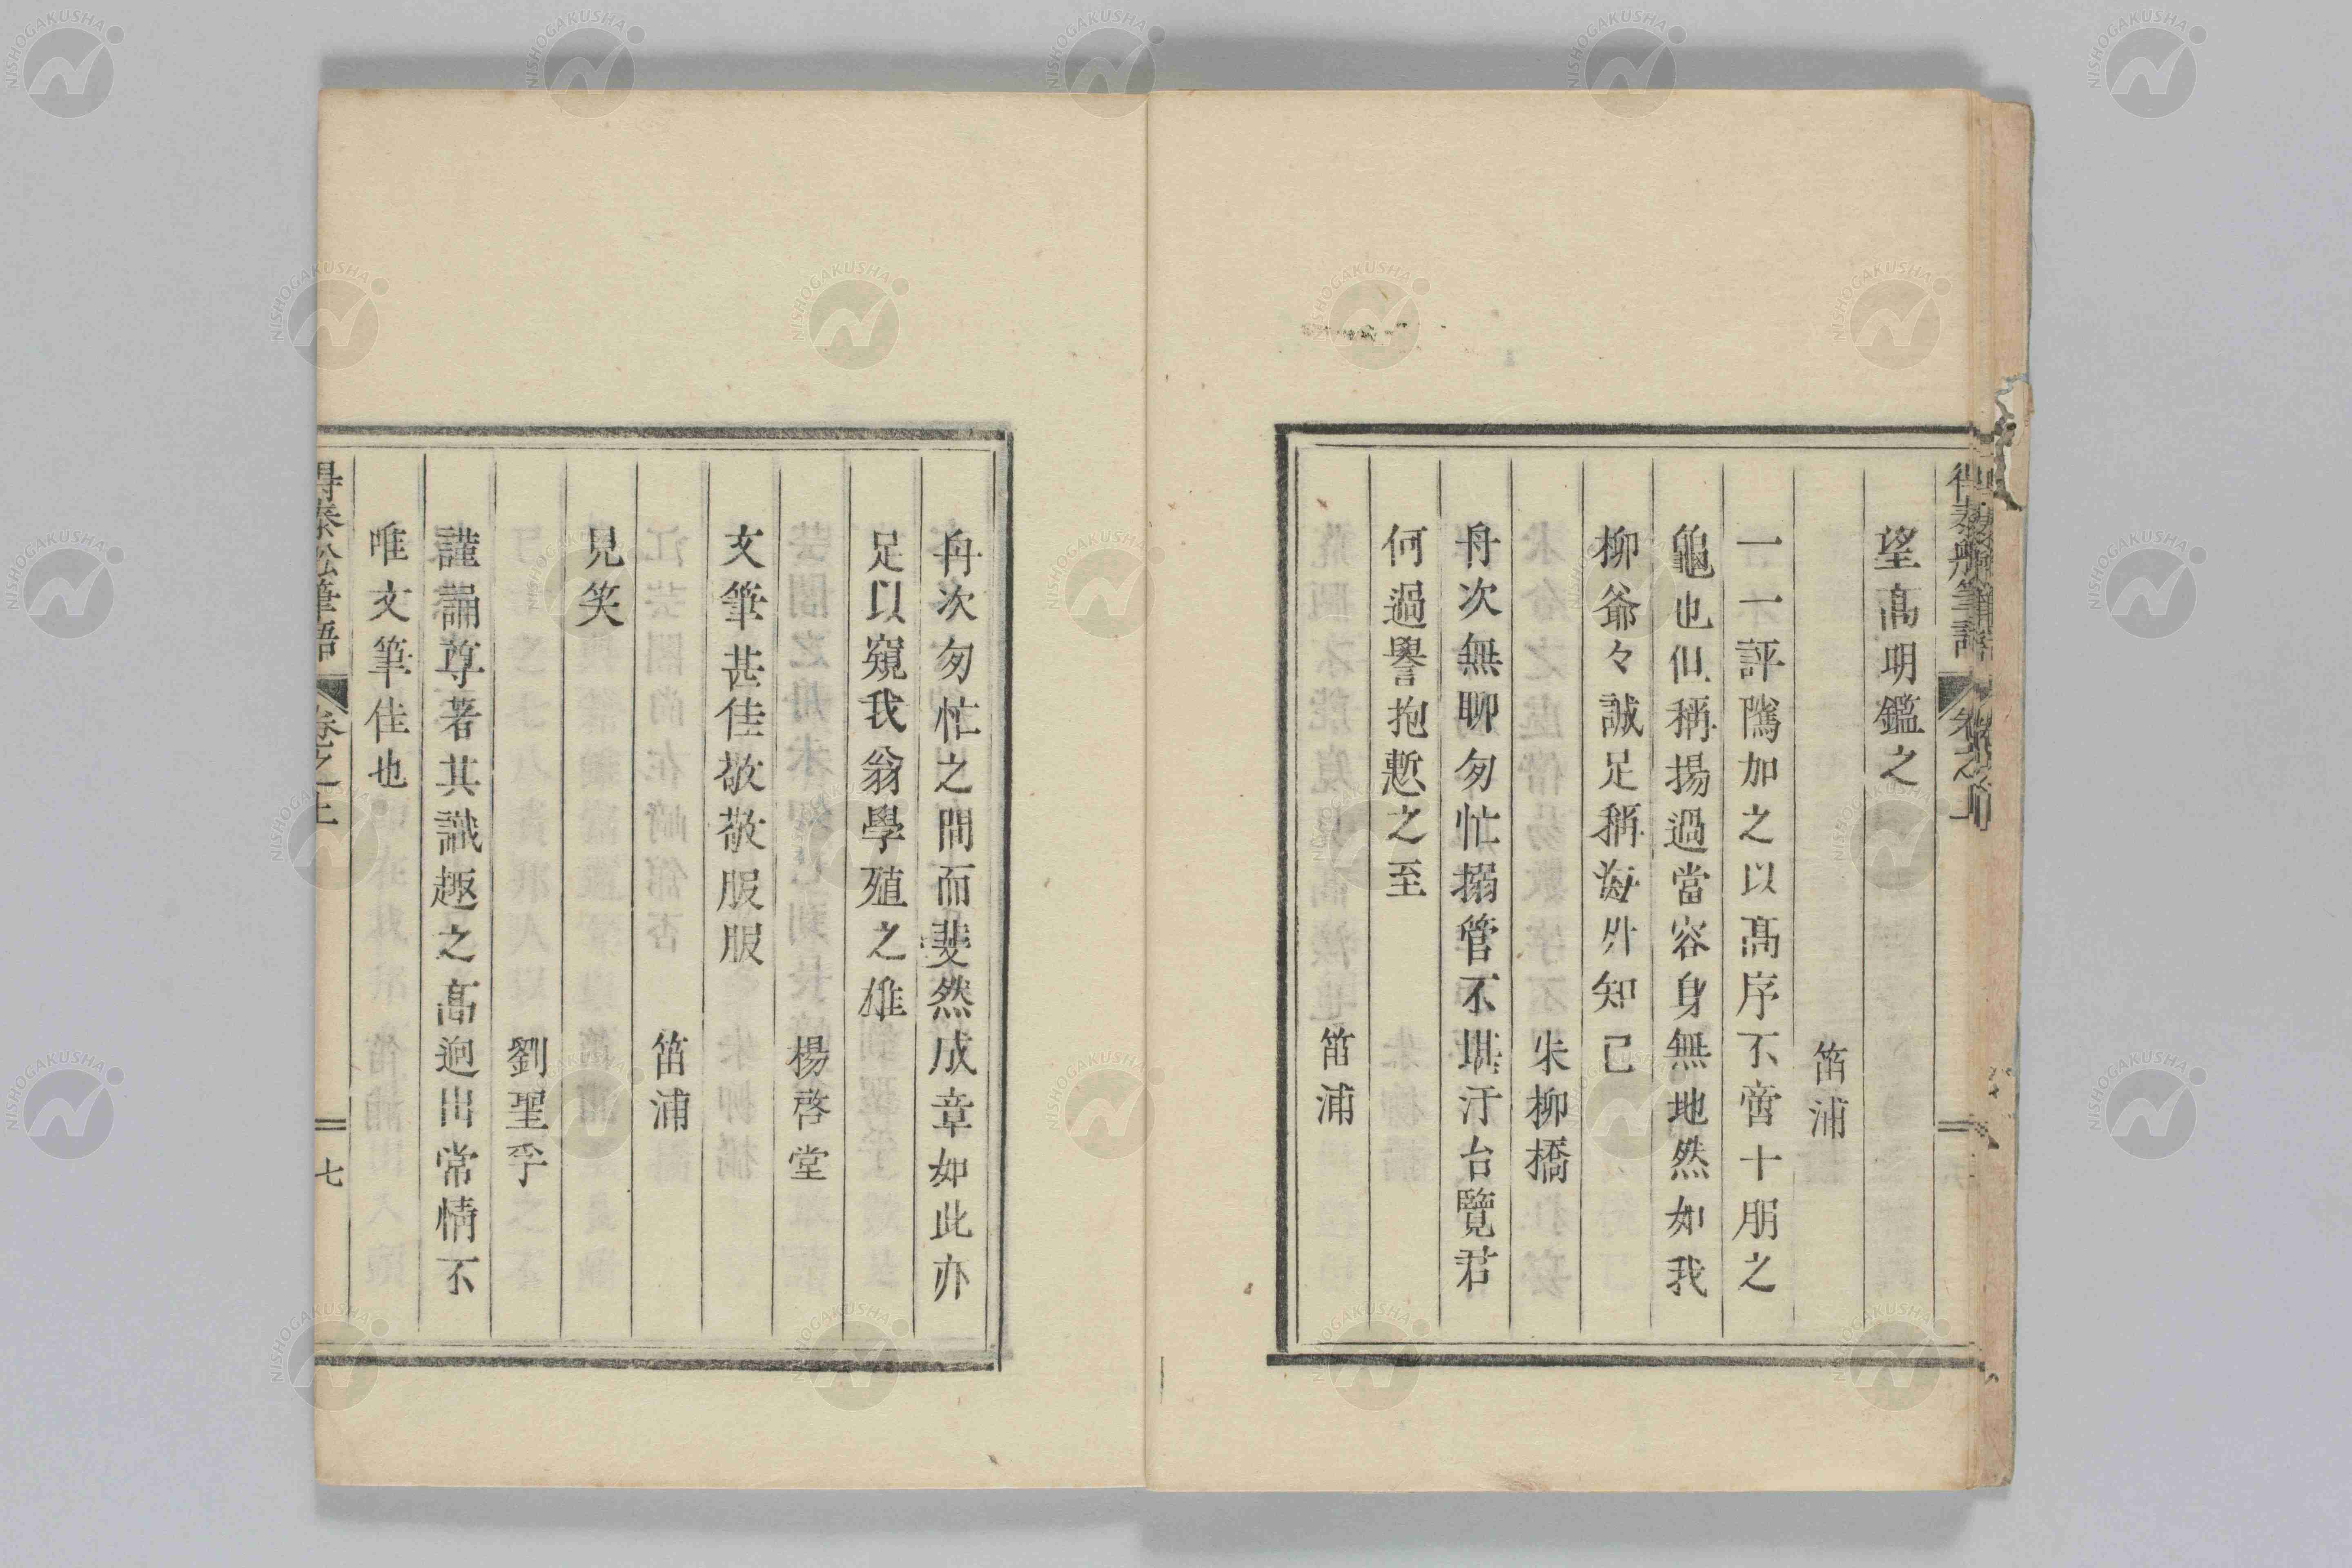 望高明鑑之
笛浦
一一評隲加之以高序不啻十朋之
龜也但稱揚過當容身無地然如我
柳爺々誠足稱海外知己
朱柳橋
舟次無聊匆忙搦管不堪汙台覽君
何過譽抱慙之至
笛浦
舟次匆忙之間而斐然成章如此亦
足以窺我翁學殖之雄
楊啓堂
文筆甚佳敬敬服服
笛浦
見笑
劉聖孚
謹誦尊著其識趣之高逈出常情不
唯文筆佳也
得泰船筆語 卷之上 七
NISHOGAKUSHA